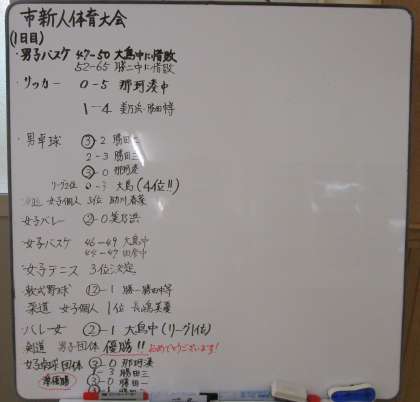 市新人体育大会
(1日目)
・男子バスケ 47-50 大島中に惜敗
52-65 勝二中に惜敗
・サッカー 0-5 那珂湊中
1-4 美乃浜・勝田特
・男卓球 ③-2 勝田二
2-3 勝田三
③-0 那珂湊
リーグ2位 0-3 大島 (4位!!)
女子個人 3位
・女子バレー ②-0 美乃浜
・女子バスケ 46-49 大島中
45-47 田彦中
・女子テニス 3位決定
・軟式野球 ⑫-1 勝一勝田中等
・柔道 女子個人 1位
・バレー女 ②-1 大島中 (リーグ1位)
・剣道 男子団体 優勝!! おめでとうございます!
・女子卓球団体 ③-0 那珂湊
準優勝 -3 勝田三
③-0 勝田一